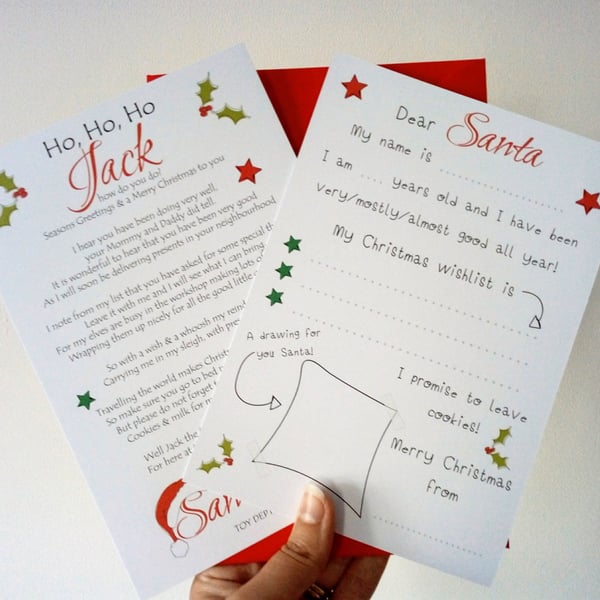 Ho, Ho, Ho
Jack
how do you do?
Seasons Greetings & a Merry Christmas to you
I hear you have been doing very well,
your Mommy and Daddy did tell.
It is wonderful to hear that you have been very good
As I will soon be delivering presents in your neighbourhood
I note from my list that you have asked for some special
Leave it with me and I will see what I can bring
For my elves are busy in the workshop making lots
Wrapping them up nicely for all the good little
So with a wish & a whoosh my
Carrying me in my sleigh, with
Travelling the world makes
So make sure you go to bed
But please do not forget
Cookies & milk for
Well Jack the
For here at
TOY
Dear Santa
My name is
I am .... years old and I have been
very/mostly/almost good all year!
My Christmas wishlist is
A drawing for
you Santa!
I promise to leave
cookies!
Merry Christmas
from